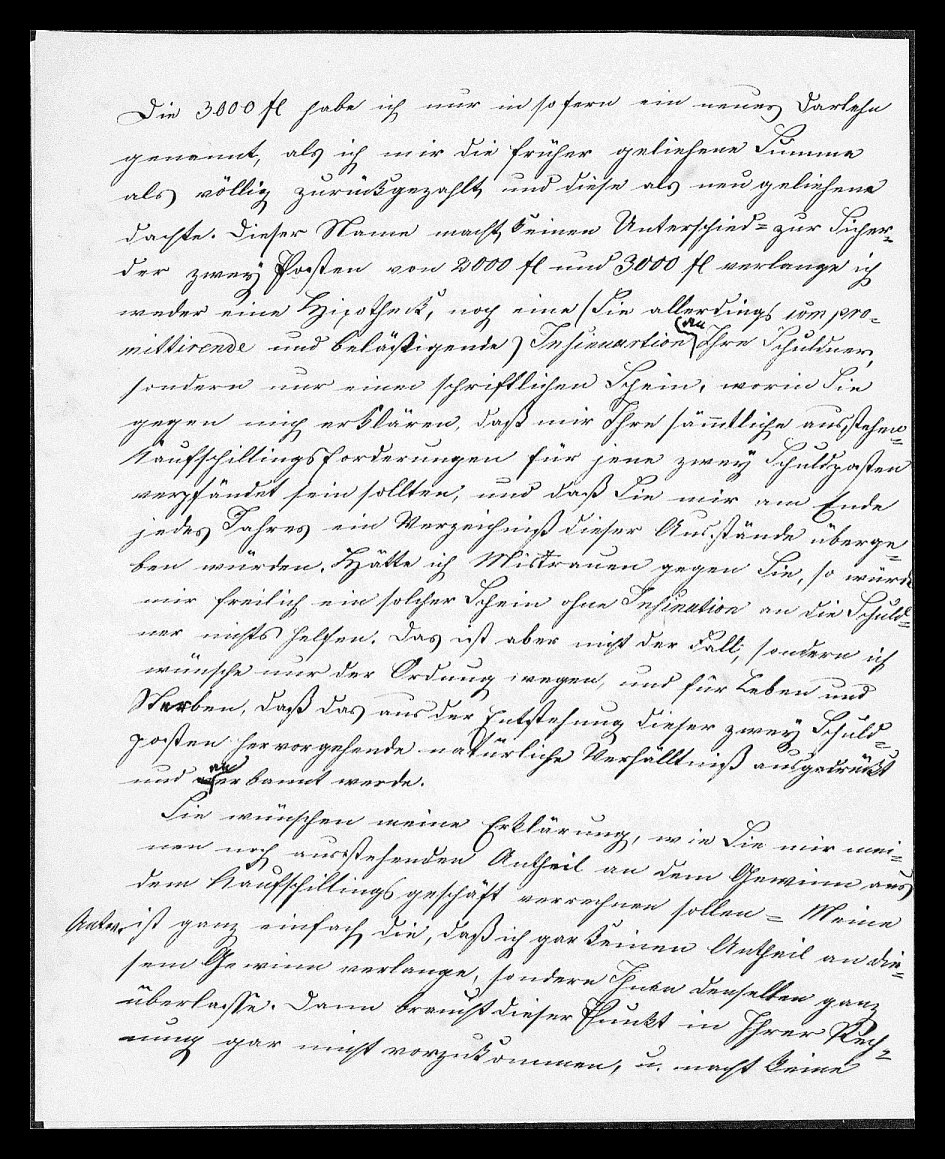 Die 3000 fl habe ich nur in sofern ein neues Darlehn
genannt, als ich mir die früher geliehene Summe
als völlig zurückgezahlt und diese als neu geliehene
dachte. Dieser Name macht keinen Unterschied = zur Sicher=
der zwey Posten von 2000 fl und 3000 fl verlange ich
weder eine Hipotheck, noch eine (Sie allerdings compro=
mittirende und belästigende) Insinuartion an Ihre Schuldner,
sondern nur einen schriftlichen Schein, worin Sie
gegen mich erklären, daß mir Ihre sämmtliche ausstehen=
Kaufschillingsforderungen für jene zwey Schuldposten
verpfändet sein sollten, und daß Sie mir am Ende
jedes Jahres ein Verzeichniß dieser Ausstände überge=
ben würden. Hätte ich Mistrauen gegen Sie, so würde
mir freilich ein solcher Schein ohne Insinuation an die Schuld=
ner nichts helfen. Das ist aber nicht der Fall, sondern ich
wünsche nur der Ordnung wegen, und für Leben und
Sterben, daß das aus der Entstehung dieser zwey Schuld=
posten hervorgehende natürliche Verhälltniß ausgedrückt
und anerkannt werde.
Sie wünschen meine Erklärung, wie Sie mir mei=
nen noch ausstehenden Antheil an dem Gewinn aus
dem Kaufschillingsgeschäft verrechnen sollen = Meine
Antw. ist ganz einfach die, daß ich gar keinen Antheil an die=
sem Gewinn verlange, sondern Ihnen denselben ganz
überlasse. Dann braucht dieser Punkt in Ihrer Rech=
nung gar nicht vorzukommen, u. macht keine